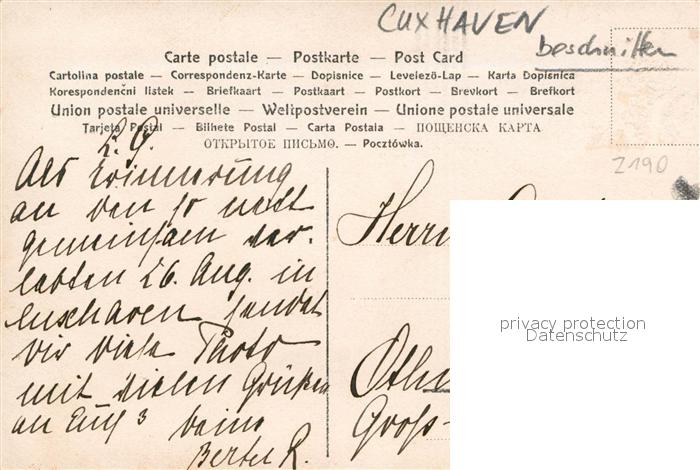 CUXHAVEN
beschnitten
Carte postale — Postkarte — Post Card
Cartolina postale — Correspondenz-Karte — Dopisnice — Levelező-Lap — Karta Dopisnica
Korespondenčni listek — Briefkaart — Postkaart — Postkort — Brevkort — Brefkort
Union postale universelle — Weltpostverein — Unione postale universale
Tarjeta Postal — Bilhete Postal — Carta Postala — ПОЩЕНСКА КАРТА
ОТКРЫТОЕ ПИСЬМО. — Pocztówka.
Z190
L. O.
Als Erinnerung
an den so nett
gemeinsam ver-
lebten 26. Aug. in
Cuxhaven sendet
Dir diese Photo
mit vielen Grüßen
an Euch 3 Deine
Bertel R.
Herrn
Oth
Groß-
privacy protection
Datenschutz